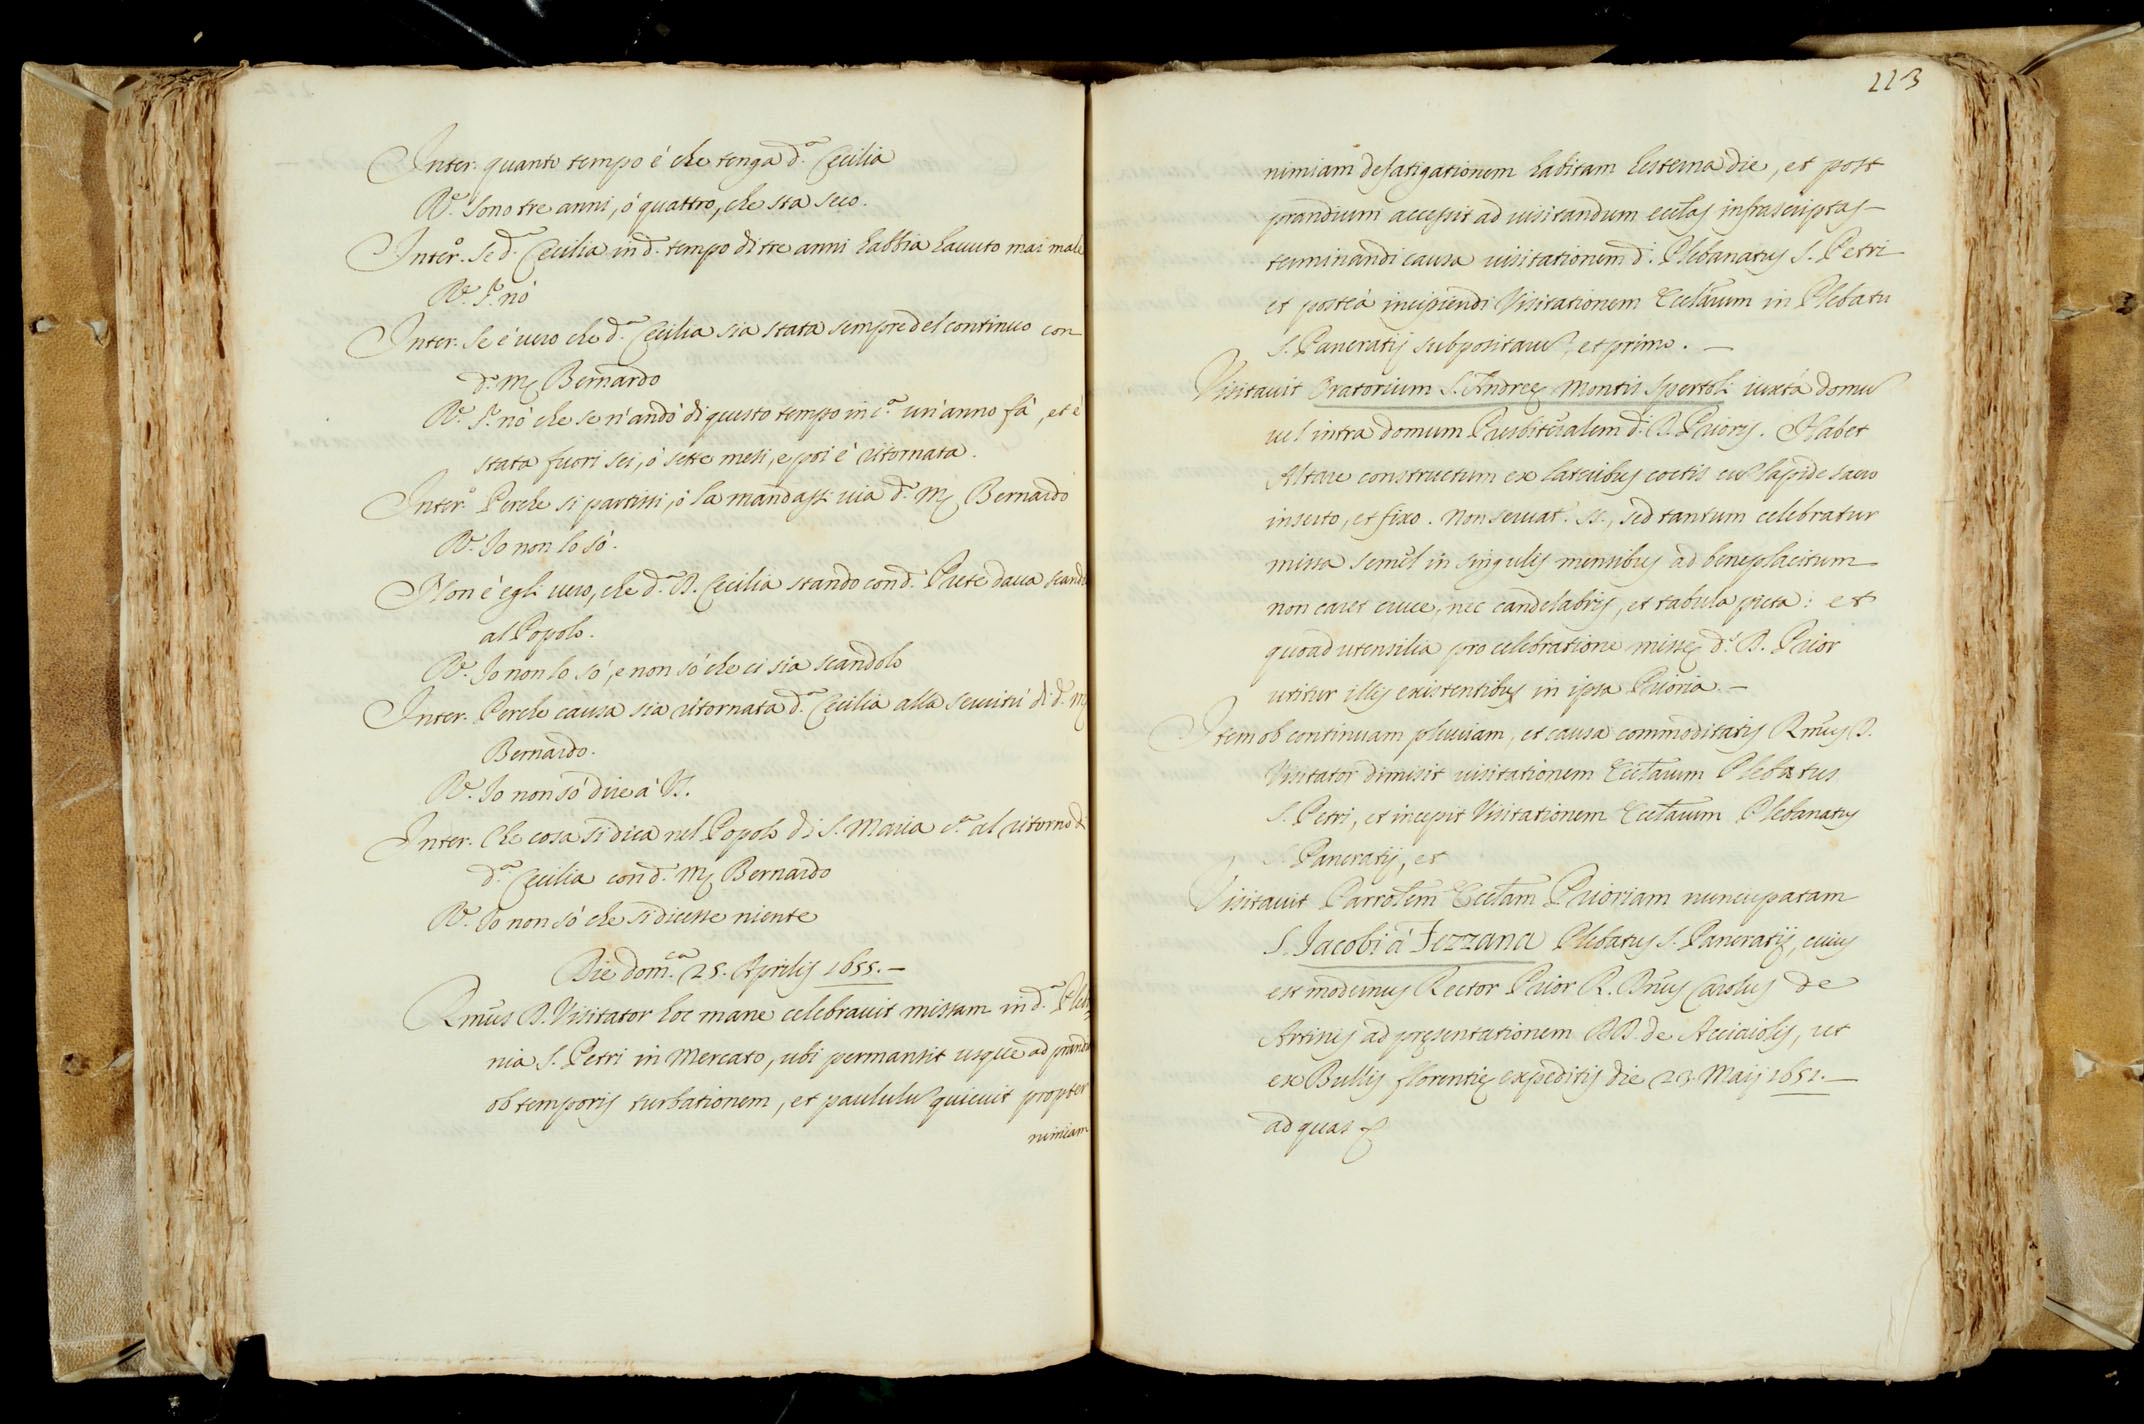 Inter. quanto tempo é che tenga d.ª Cecilia
R.ᵉ sono tre anni, ó quattro, che sta seco.
Inter.º Se d.ª Cecilia in d.º tempo di tre anni habbia hauuto mai male
R.ᵉ S.ʳ nó
Inter. Se é uero che d.ª Cecilia sia stata sempre del continuo con
d.º M. Bernardo
R.ᵉ S.ʳ nó che se n'andó di questo tempo in c.ª un'anno fá, et é
stata fuori sei, ó sette mesi, e poi é ritornata.
Inter.º Perche si partissi, ó la mandassi uia d.º M. Bernardo
R.ᵉ Io non lo só.
Non é egli uero, che d.ª D. Cecilia stando con d.º Prete daua scand
al Popolo.
R.ᵉ Io non lo só, e non só che ci sia scandolo
Inter. Perche causa sia ritornata d.ª Cecilia alla seruitú di d.º M
Bernardo.
R.ᵉ Io non só dire á V.S.
Inter. Che cosa si dica nel Popolo di S. Maria d.ª al ritorno d
d.ª Cecilia con d.º M. Bernardo
R.ᵉ Io non só che si dicesse niente
Die dom.ca 25. Aprilis 1655.—
Rmus D. Visitator hoc mane celebrauit missam in d.ª Pleb
nia S. Petri in Mercato, ubi permansit usque ad prand
ob temporis turbationem, et paululu quieuit propter
nimiam
223
nimiam defatigationem habitam hesterna die, et post
prandium accessit ad uisitandum eccl̃as infrascriptas—
terminandi causa uisitationem d.ⁱ Plebanatus S. Petri
et posteá incipiendi Visitationem Eccl̃arum in Plebatu
S. Pancratij subpositaru, et primo.—
Visitauit Oratorium S. Andreę Montis Spertoli iuxtá domu
uel intra domum Presbiteralem d.ⁱ D. Prioris. Habet
Altare constructum ex lateribus coctis cu lapide sacro
inserto, et fixo. Non seruat. SS., sed tantum celebratur
missa semel in singulis mensibus ad beneplacitum
non caret cruce, nec candelabris, et tabula picta: et
quoad utensilia pro celebratione missę d.ˢ D. Prior
utitur illis existentibus in ipsa Prioria.—
Item ob continuam pluuiam, et causa commoditatis Rmus D.
Visitator dimisit uisitationem Eccl̃arum Plebatus
S. Petri, et incepit Visitationem Eccl̃arum Plebanatus
S. Pancratij, et
Visitauit Parrolem Eccl̃am Prioriam nuncupatam
S. Jacobi á Fezzana Plebatus S. Pancratij, cuius
est modernus Rector Prior R. Dnus Carolus de
Attinis ad pręsentationem DD. de Acciaiolis, ut
ex Bullis florentię expeditis die 23. Maij 1651.—
ad quas &